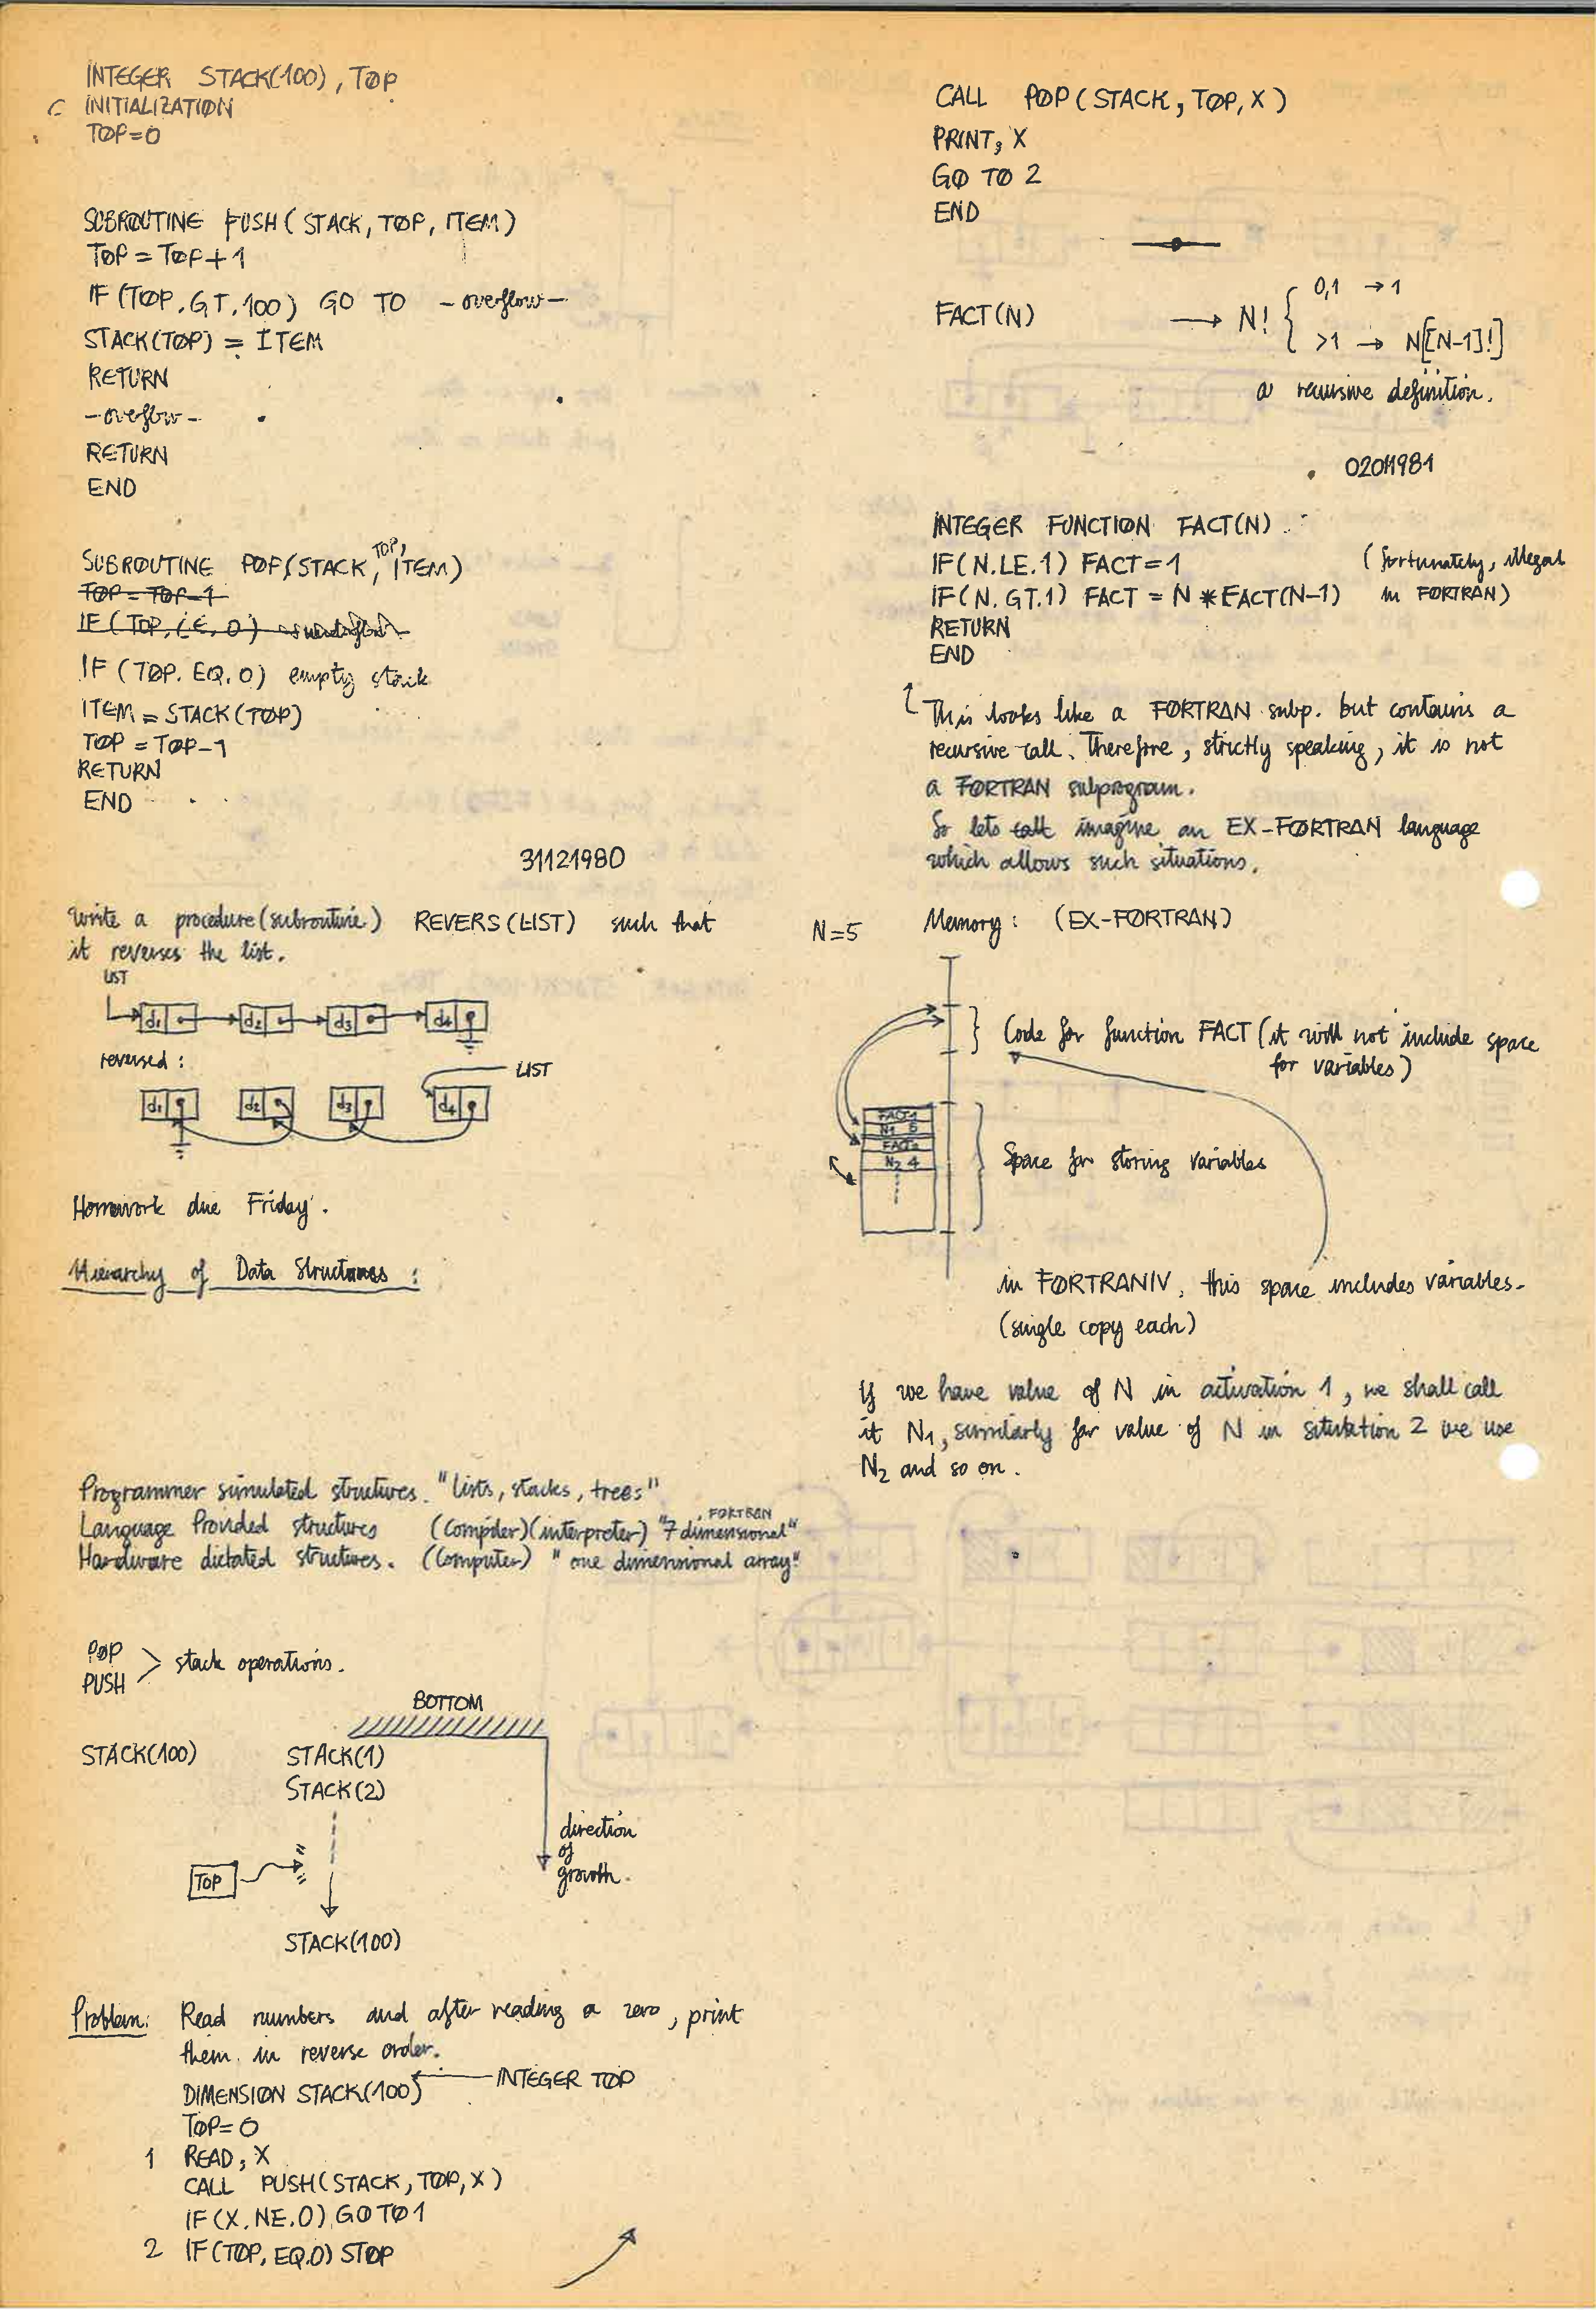 INTEGER STACK(100), TOP
C INITIALIZATION
TOP=0
SUBROUTINE PUSH(STACK, TOP, ITEM)
TOP = TOP+1
IF(TOP.GT.100) GO TO -overflow-
STACK(TOP) = ITEM
RETURN
-overflow-
RETURN
END
SUBROUTINE POP(STACK, TOP, ITEM)
TOP = TOP-1
IF(TOP.LE.0)
IF(TOP.EQ.0) empty stack
ITEM = STACK(TOP)
TOP = TOP-1
RETURN
END
31121980
Write a procedure(subroutine) REVERS(LIST) such that
it reverses the list.
LIST
d1 d2 d3 d4
reversed:
LIST
d1 d2 d3 d4
Homework due Friday.
Hierarchy of Data Structures:
Programmer simulated structures. "lists, stacks, trees"
FORTRAN
Language Provided structures (Compiler)(interpreter) "7 dimensional"
Hardware dictated structures. (Computer) "one dimensional array"
POP
PUSH > stack operations.
BOTTOM
STACK(100) STACK(1)
STACK(2)
direction
of
growth.
TOP
STACK(100)
Problem: Read numbers and after reading a zero, print
them in reverse order.
DIMENSION STACK(100) INTEGER TOP
TOP=0
1 READ, X
CALL PUSH(STACK, TOP, X)
IF(X.NE.0) GO TO 1
2 IF(TOP.EQ.0) STOP
CALL POP(STACK, TOP, X)
PRINT, X
GO TO 2
END
0,1 → 1
FACT(N) → N! {
>1 → N[N-1]!]
a recursive definition.
02011981
INTEGER FUNCTION FACT(N)
IF(N.LE.1) FACT=1 (fortunately, illegal
IF(N.GT.1) FACT = N*FACT(N-1) in FORTRAN)
RETURN
END
This looks like a FORTRAN subp. but contains a
recursive call. Therefore, strictly speaking, it is not
a FORTRAN subprogram.
So lets call imagine an EX-FORTRAN language
which allows such situations.
N=5 Memory: (EX-FORTRAN)
Code for function FACT (it will not include space
for variables)
FACT1
N1 5
FACT2
N2 4
Space for storing variables
in FORTRANIV, this space includes variables.
(single copy each)
If we have value of N in activation 1, we shall call
it N1, similarly for value of N in situation 2 we use
N2 and so on.